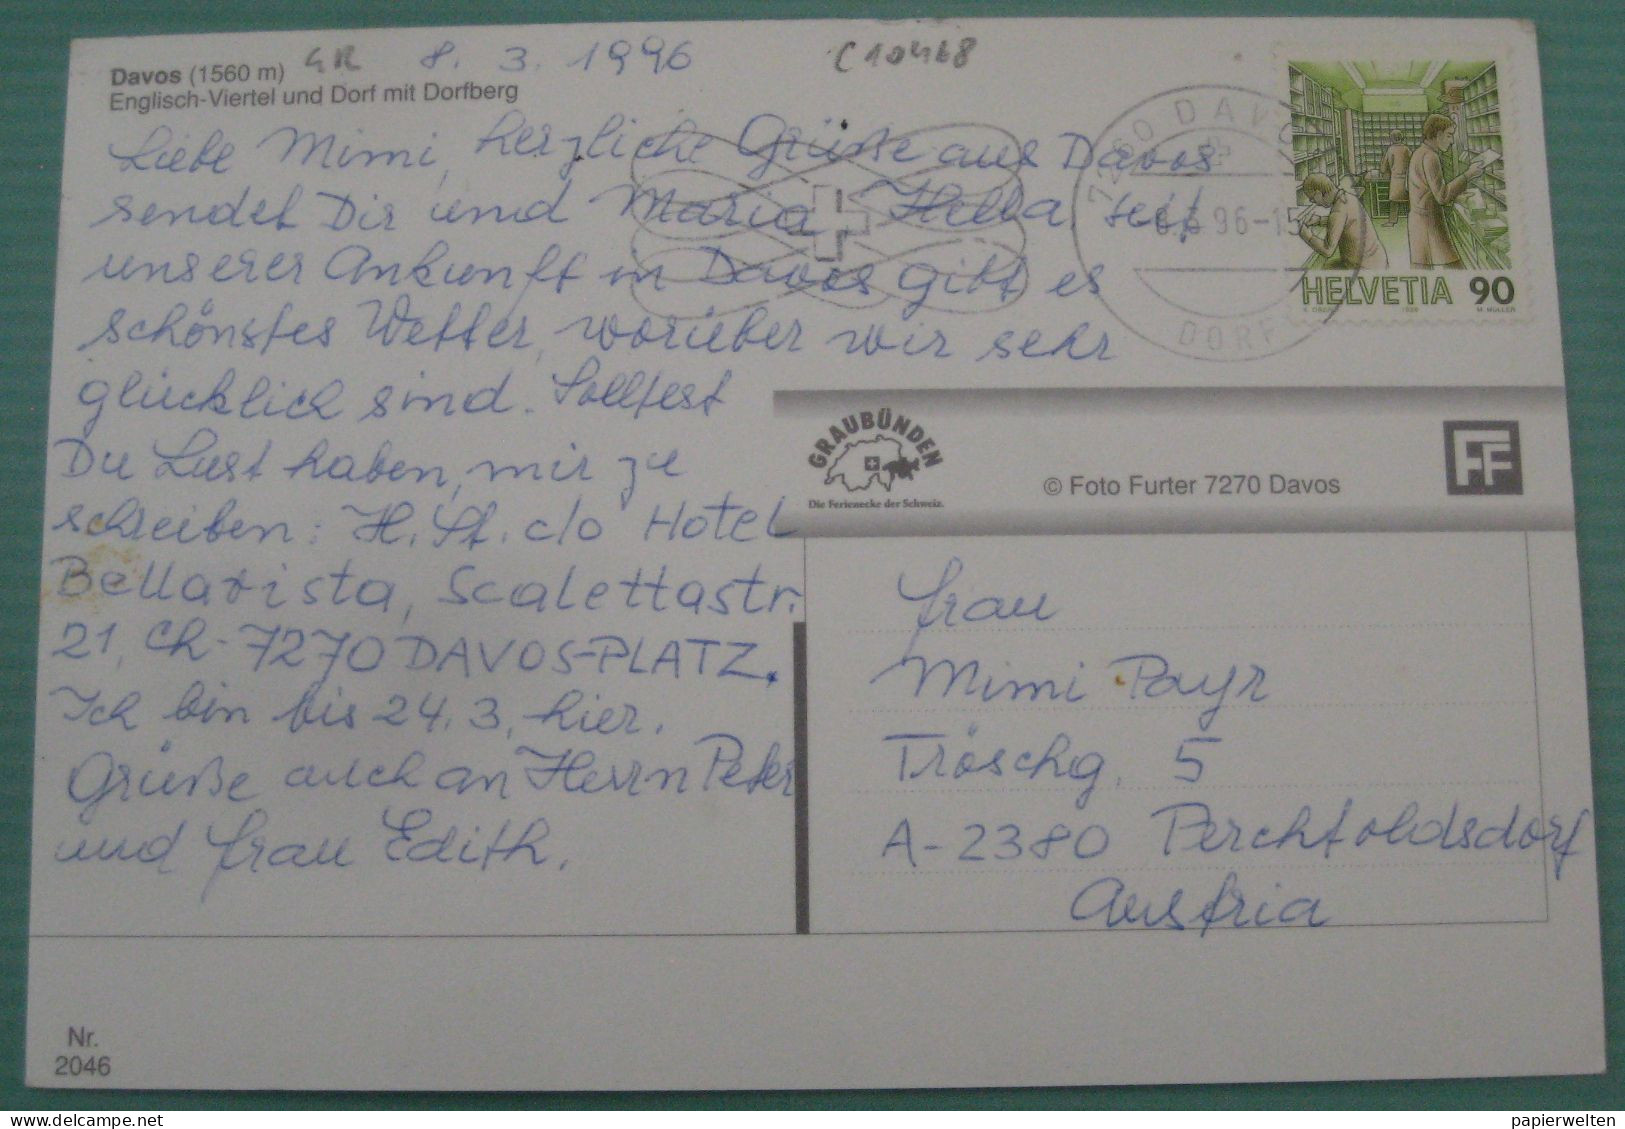 Davos (1560 m)
Englisch-Viertel und Dorf mit Dorfberg
GR 8. 3. 1996
C10468
Liebe Mimi, herzliche Grüße aus Davos
sendet Dir und Maria Hella, seit
unserer Ankunft in Davos gibt es
schönstes Wetter, worüber wir sehr
glücklich sind. Solltest
Du Lust haben, mir zu
schreiben: H. St. c/o Hotel
Bellavista, Scalettastr.
21, CH-7270 DAVOS-PLATZ.
Ich bin bis 24.3. hier.
Grüße auch an Herrn Peter
und Frau Edith.
7260 DAVOS
8.3.96-15
DORF
HELVETIA 90
GRAUBÜNDEN
Die Ferienecke der Schweiz.
© Foto Furter 7270 Davos
FF
Frau
Mimi Payr
Tröschg. 5
A-2380 Perchtoldsdorf
Austria
Nr.
2046
delcampe.net
papierwelten